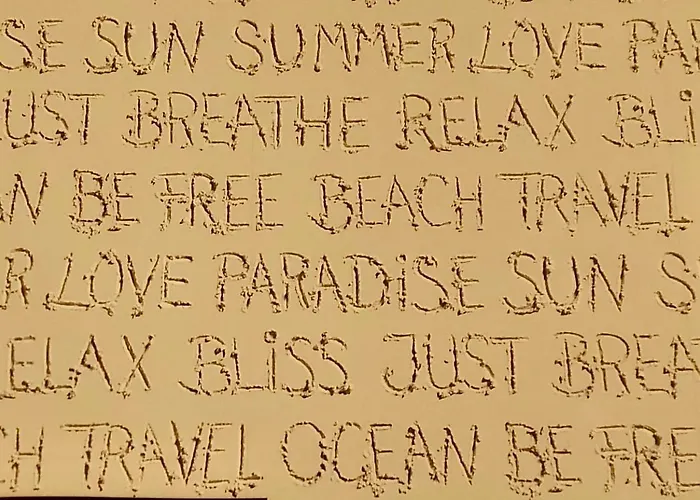 SE SUN SUMMER LOVE PA
UST BREATHE RELAX BLi
N BE FREE BEACH TRAVEL
R LOVE PARADiSE SUN S
ELAX BLiSS JUST BREA
H TRAVEL OCEAN BE FRE